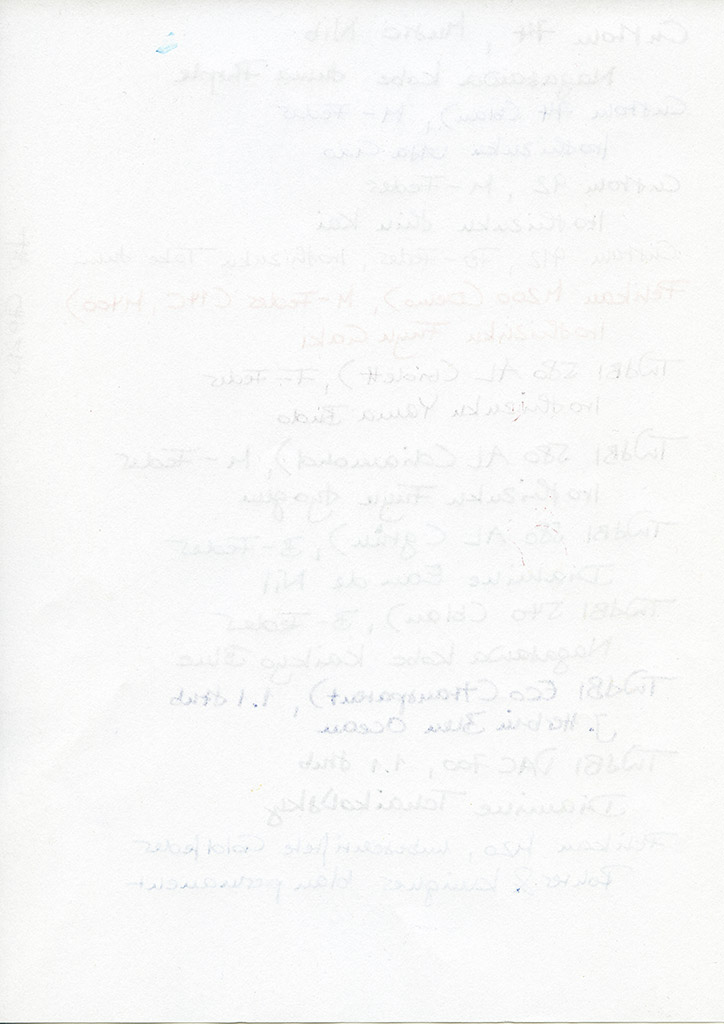 Custom 74, Music Nib
Nagasawa Kobe Purple
Custom 74 (blau), M-Feder
Iroshizuku
Custom 742, M-Feder
Iroshizuku Shin Kai
Custom 912, Feder, Iroshizuku Take
Pelikan M200 M-Feder M400)
Iroshizuku Fuyu Gaki
TWSBI 580 AL F-Feder
Iroshizuku Yama Budo
TWSBI 580 AL (diamond), M-Feder
Iroshizuku Fuyu Syogun
TWSBI 580 AL (grün), B-Feder
Diamine Eau de Nil
TWSBI 540 (blau), B-Feder
Nagasawa Kobe Kaikyo Blue
TWSBI Eco (transparent), 1.1 Stub
J. Herbin Bleu Ocean
TWSBI VAC 700, 1.1 Stub
Diamine Tchaikovsky
Pelikan M20, Goldfeder
Rohrer & Klingner blau permanent